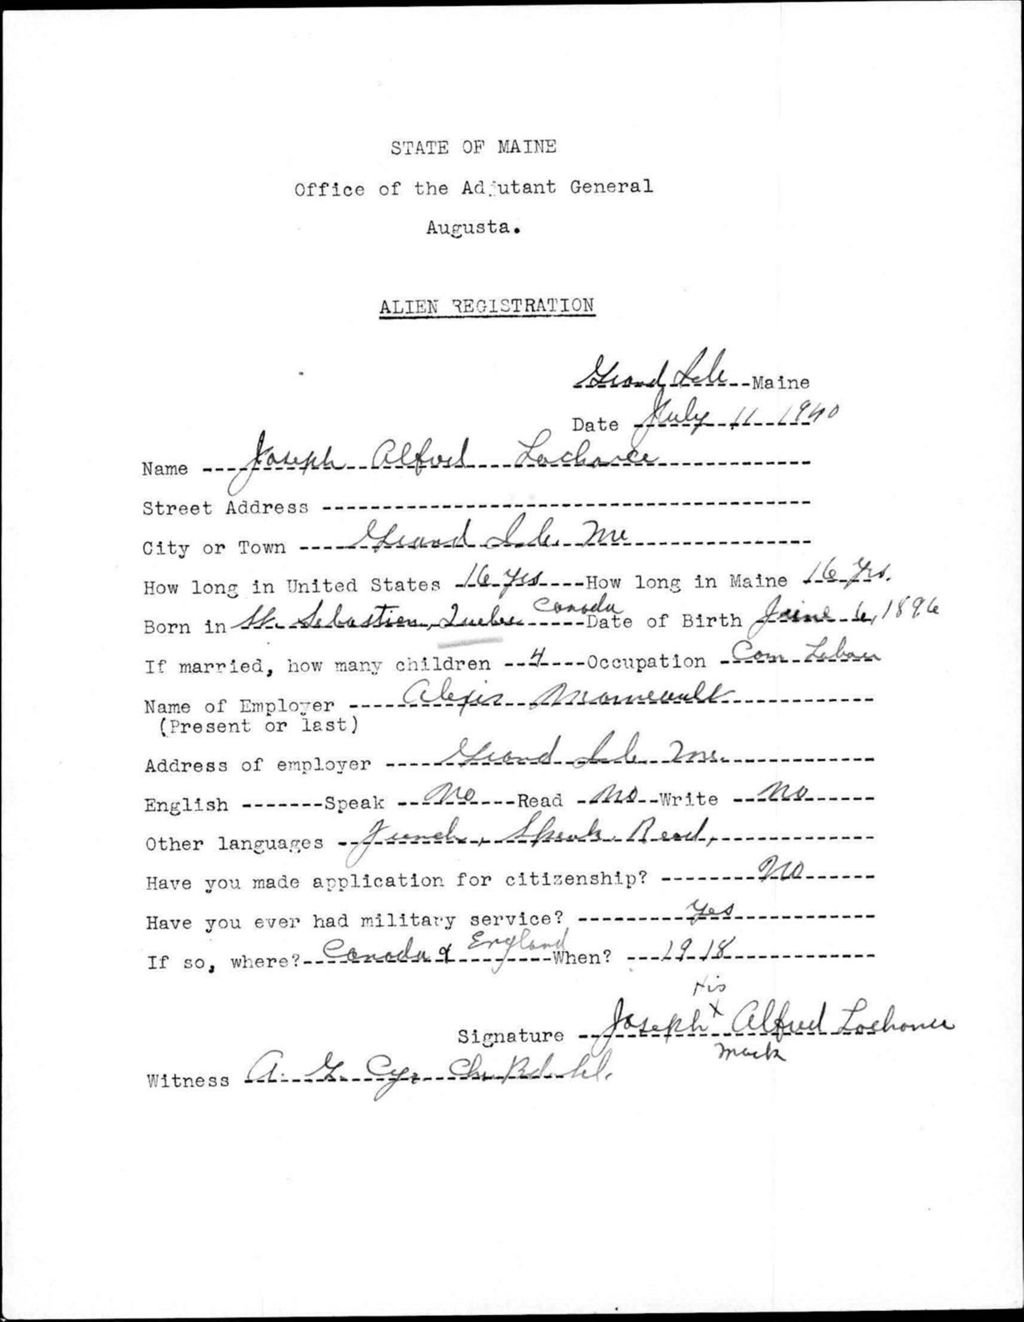 STATE OF MAINE
Office of the Adjutant General
Augusta.
ALIEN REGISTRATION
Grand Isle Maine
Date July 11 1940
Name Joseph Alfred Lachance
Street Address
City or Town Grand Isle Me
How long in United States 16 yrs How long in Maine 16 Yrs.
Born in St. Sebastien, Quebec Canada Date of Birth June 6, 1896
If married, how many children 4 Occupation Com Labor
Name of Employer Alexis
(Present or last)
Address of employer Grand Isle Me.
English Speak No Read No Write No
Other languages French, Speak Read,
Have you made application for citizenship? No
Have you ever had military service? Yes
If so, where? Canada & England When? 1918
His
Signature Joseph X Alfred Lachance
mark
Witness A. G. Cyr Ch. Bd.